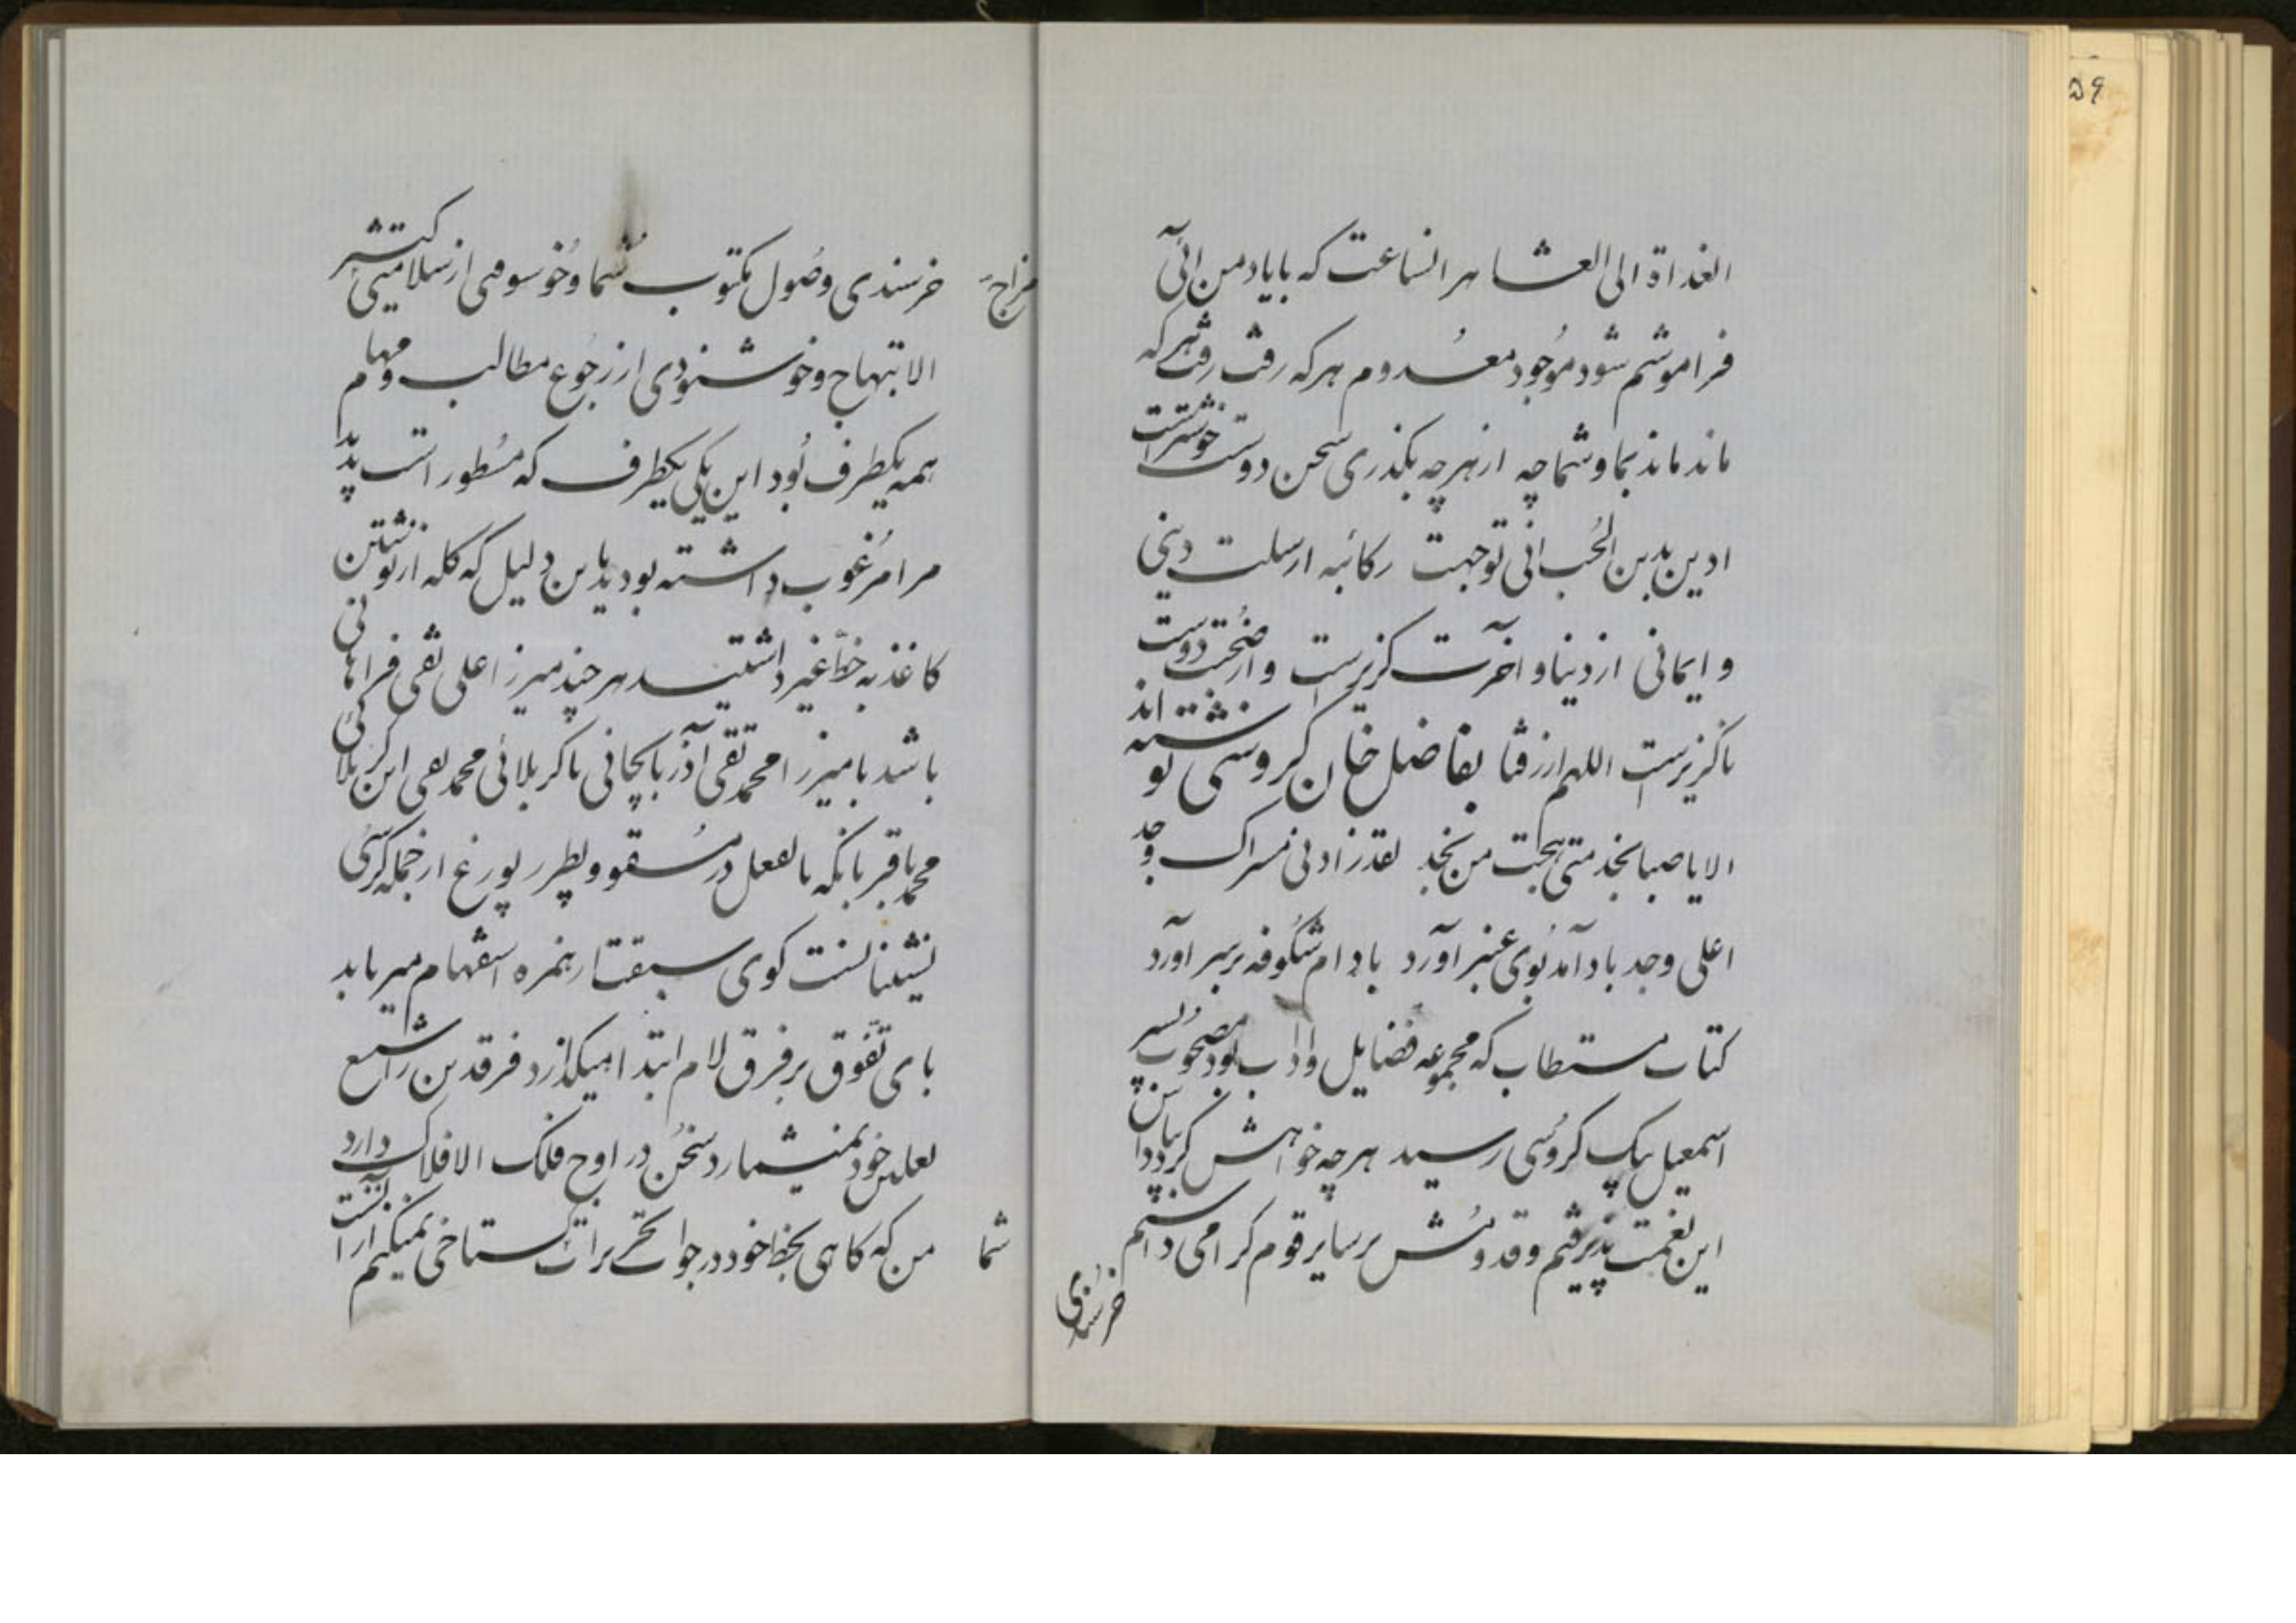 ۵۹
الغداة الی العشا هر انساعت که بایاد من ائی
فراموشم شود موجود معدوم هرکه رفت رفت هرکه
ماند ماند بما و شما چه از هر چه بگذری سخن دوست خوشتر است
ادین بدین الحب انی توجهت رکائبه ارسلت دینی
و ایمانی از دنیا و اخرت گزیرست و از صحبت دوست
ناگزیرست اللهم ارزقنا بفاضل خان گروسی نوشته اند
الا یا صبا نجد متی هجت من نجد لقد زادنی مسراک وجد
اعلی وجد باد آمد بوی عنبر آورد بادام شکوفه بر سر آورد
کتاب مستطاب که مجموعه فضایل و اداب بود مصحوب پسر
اسمعیل بیک گروسی رسید هر چه خواهش کردد
این نعمت پذیرفتم و قدومش بر سایر قوم گرامی داشتم
خرسندی
خرسندی وصول مکتوب شما و خوسومی از سلامتی مزاج
الابتهاج و خوشنودی از رجوع مطالب و مهام
همه یکطرف بود این یکی یکطرف که مسطور است
مرا مرغوب داشته بودید باین دلیل که کله از نوشتن
کاغذ به خط غیر داشتید هر چند میرزا علی نقی فراهانی
باشد یا میرزا محمد تقی آذربایجانی یا کربلائی محمد تقی ابن کربلائی
محمد باقر بانکه بالفعل در مسقو و پطرر پورغ از جمله کرسی
نشینانست کوی سبقت از همزه استفهام میرباید
پای تفوق بر فرق لام ابتدا میگذارد فرقدین را شسع
نعلین خود نمیشمارد سخن در اوج فلک الافلاک دارد
من که کاهی بخط خود در جواب تحریرات شما کستاخی نمیکنم از آنست